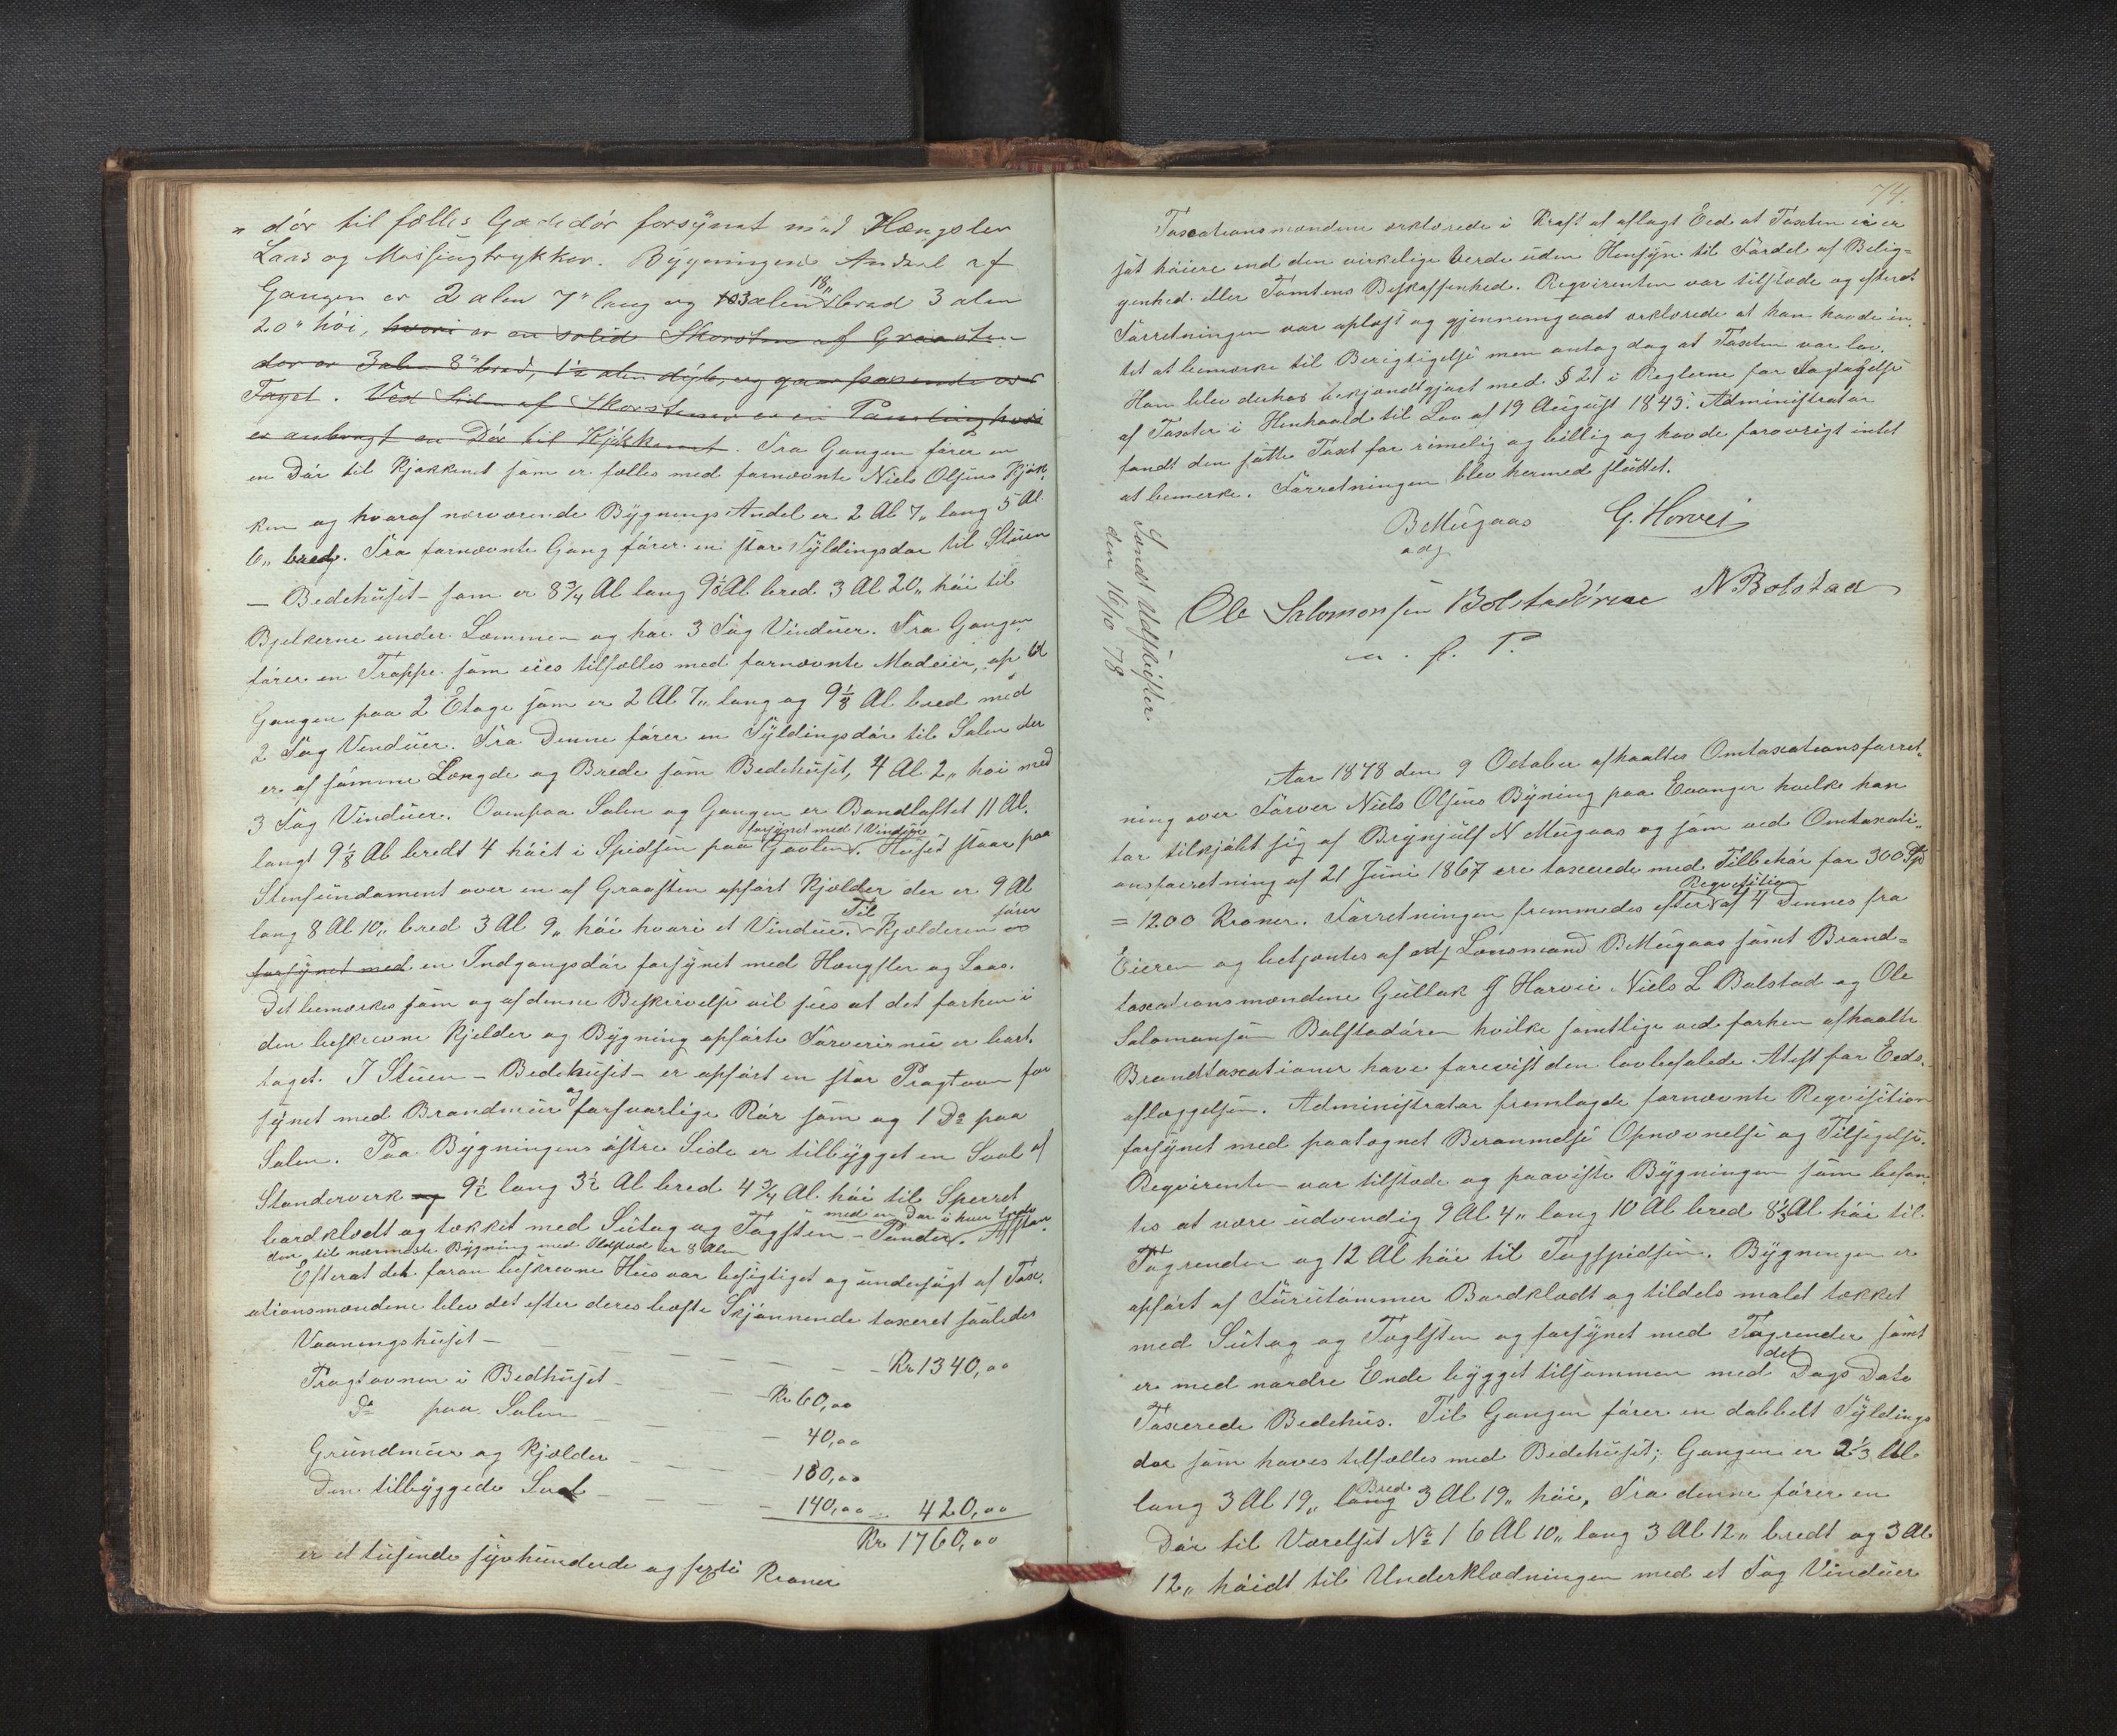 „ dör til fælles Gadedör forsynet med Hængsler
Laas og Messingtrykker. Bygningens Andeel af
Gangen er 2 alen 7" lang og 3 alen 18" bred 3 alen
20" höi, hvori er en solid Skorsten af Graasten
der er 3 alen 8" bred, 1½ alen dyb, og gaar passende over
Taget. Ved Siden af Skorstenen er en Paneling hvori
er anbragt en Dör til Kjökkenet. Fra Gangen förer en
en Dör til Kjøkkenet som er fælles med fornævnte Niels Olsens Kjök-
ken og hvoraf nærværende Bygnings Andel er 2 Al 7„ lang 5 Al
6„ bred. Fra fornævnte Gang förer en stor Fyldingsdør til Stuen
– Bedehuset – som er 8¾ Al lang 9⅛ Al bred 3 Al 20„ höi til
Bjelkerne under Lemmen og har 3 Fag Vinduer. Fra Gangen
förer en Trappe som eies tilfælles med fornævnte Madeiir, op til
Gangen paa 2 Etage som er 2 Al 7„ lang og 9⅛ Al bred med
2 Fag Vinduer. Fra Denne förer en Fyldingsdör til Salen der
er af samme Længde og Brede som Bedehuset, 4 Al 2„ höi med
3 Fag Vinduer. Ovenpaa Salen og Gangen er Bandloftet 11 Al.
langt 9⅛ Al bredt 4 höit i Spidsen paa Gavlen forsynet med 1 Vindue. Huset staar paa
Stenfundament over en af Graasten opfört Kjælder der er 9 Al
lang 8 Al 10„ bred 3 Al 9„ höi hvori et Vindue. Til Kjælderen förer
forsynet med en Indgangsdör forsynet med Hængsler og Laas.
Det bemærkes som og af denne Beskrivelse vil sees at det forhen i
den beskrevne Kjelder og Bygning opförte Farveri nu er bort-
taget. I Stuen – Bedehuset – er opfört en stor Pragtovn for
synet med Brandmuur og forsvarlige Rör som og 1 Do paa
Salen. Paa Bygningens östre Side er tilbygget en Sval af
Standerverk og 9½ lang 3½ Al bred 4¾ Al höi til Sperret
bordklædt og tækket med Sutag og Tagsten – Pander med en Dör i hver Ende. Afstan-
den til nærmeste Bygning med Ildsted er 8 Alen
Efterat det foran beskrevne Hus var besigtiget og undersögt af Tax-
ationsmændene blev det efter deres bedste Skjönnende taxeret saaledes
Vaaningshuset – Kr 1340,00
Pragtovnen i Bedhuset – Kr 60,00
Do paa Salen – 40,00
Grundmuur og Kjælder – 180,00
Den tilbyggede Sval – 140,00 = 420,00
Kr 1760,00
er et tusende syvhundrede og sexti Kroner
74.
Taxationsmændene erklærede i Kraft af aflagt Eed at Taxten ei er
sat höiere end den virkelige Verde uden Hensyn til Fordel af Belig-
genhed eller Tomtens Beskaffenhed. Reqvirenten var tilstede og efterat
Forretningen var oplæst og gjennemgaaet erklærede at han havde in-
tet at bemærke til Berigtigelse men antog dog at Taxten var lav.
Han blev derhos bekjendtgjort med § 21 i Reglerne for Iagtagelse
af Taxter i Henhold til Lov af 19 August 1845. Administrator
fandt den satte Taxt for rimelig og billig og havde forovrigt intet
at bemerke. Forretningen blev hermed sluttet.
B Mügaas G. Horvei
adj
Ole Salomonsen Bolstadören N Bolstad
m. p. P.
Sendt Udskrifter
den 16/10 78
Aar 1878 den 9 October afholdtes Omtaxationsforret-
ning over Farver Niels Olsens Byning paa Evanger hvilke han
har tilkjöbt sig af Brynjulf N Mügaas og som ved Omtaxati-
onsforretning af 21 Juni 1867 ere taxerede med Tilbehör for 300 Spd
= 1200 Kroner. Forretningen fremmedes efter Reqvisition af 4 Dennes fra
Eieren og betjentes af adj Lensmand B Mügaas samt Brand-
taxationsmændene Gullak G Horvei Niels L Bolstad og Ole
Salomonsen Bolstadören hvilke samtlige ved forhen afholdte
Brandtaxationer have forevist den lovbefalede Atest for Eeds-
aflæggelsen. Administrator fremlagde fornævnte Reqvisition
forsynet med paategnet Berammelse Opnævnelse og Tilsigelse.
Reqvirenten var tilstede og paaviste Bygningen som befan-
tes at være udvendig 9 Al 4„ lang 10 Al bred 8⅓ Al höi til
Tagrenden og 12 Al höi til Tagspidsen. Bygningen er
opfört af Furutömmer Bordklædt og tildels malet tækket
med Sutag og Taglsten og forsynet med Tagrender samt
er med nordre Ende bygget tilsammen med det Dags Dato
Taxerede Bedehus. Til Gangen förer en dobbelt Fyldings
dør som haves tilfælles med Bedehuset; Gangen er 2⅓ Al
lang 3 Al 19„ Bred 3 Al 19„ höi. Fra denne förer en
Dör til Værelset No 1 6 Al 10„ lang 3 Al 12„ bredt og 3 Al
12„ höidt til Underklædningen med et Fag Vinduer